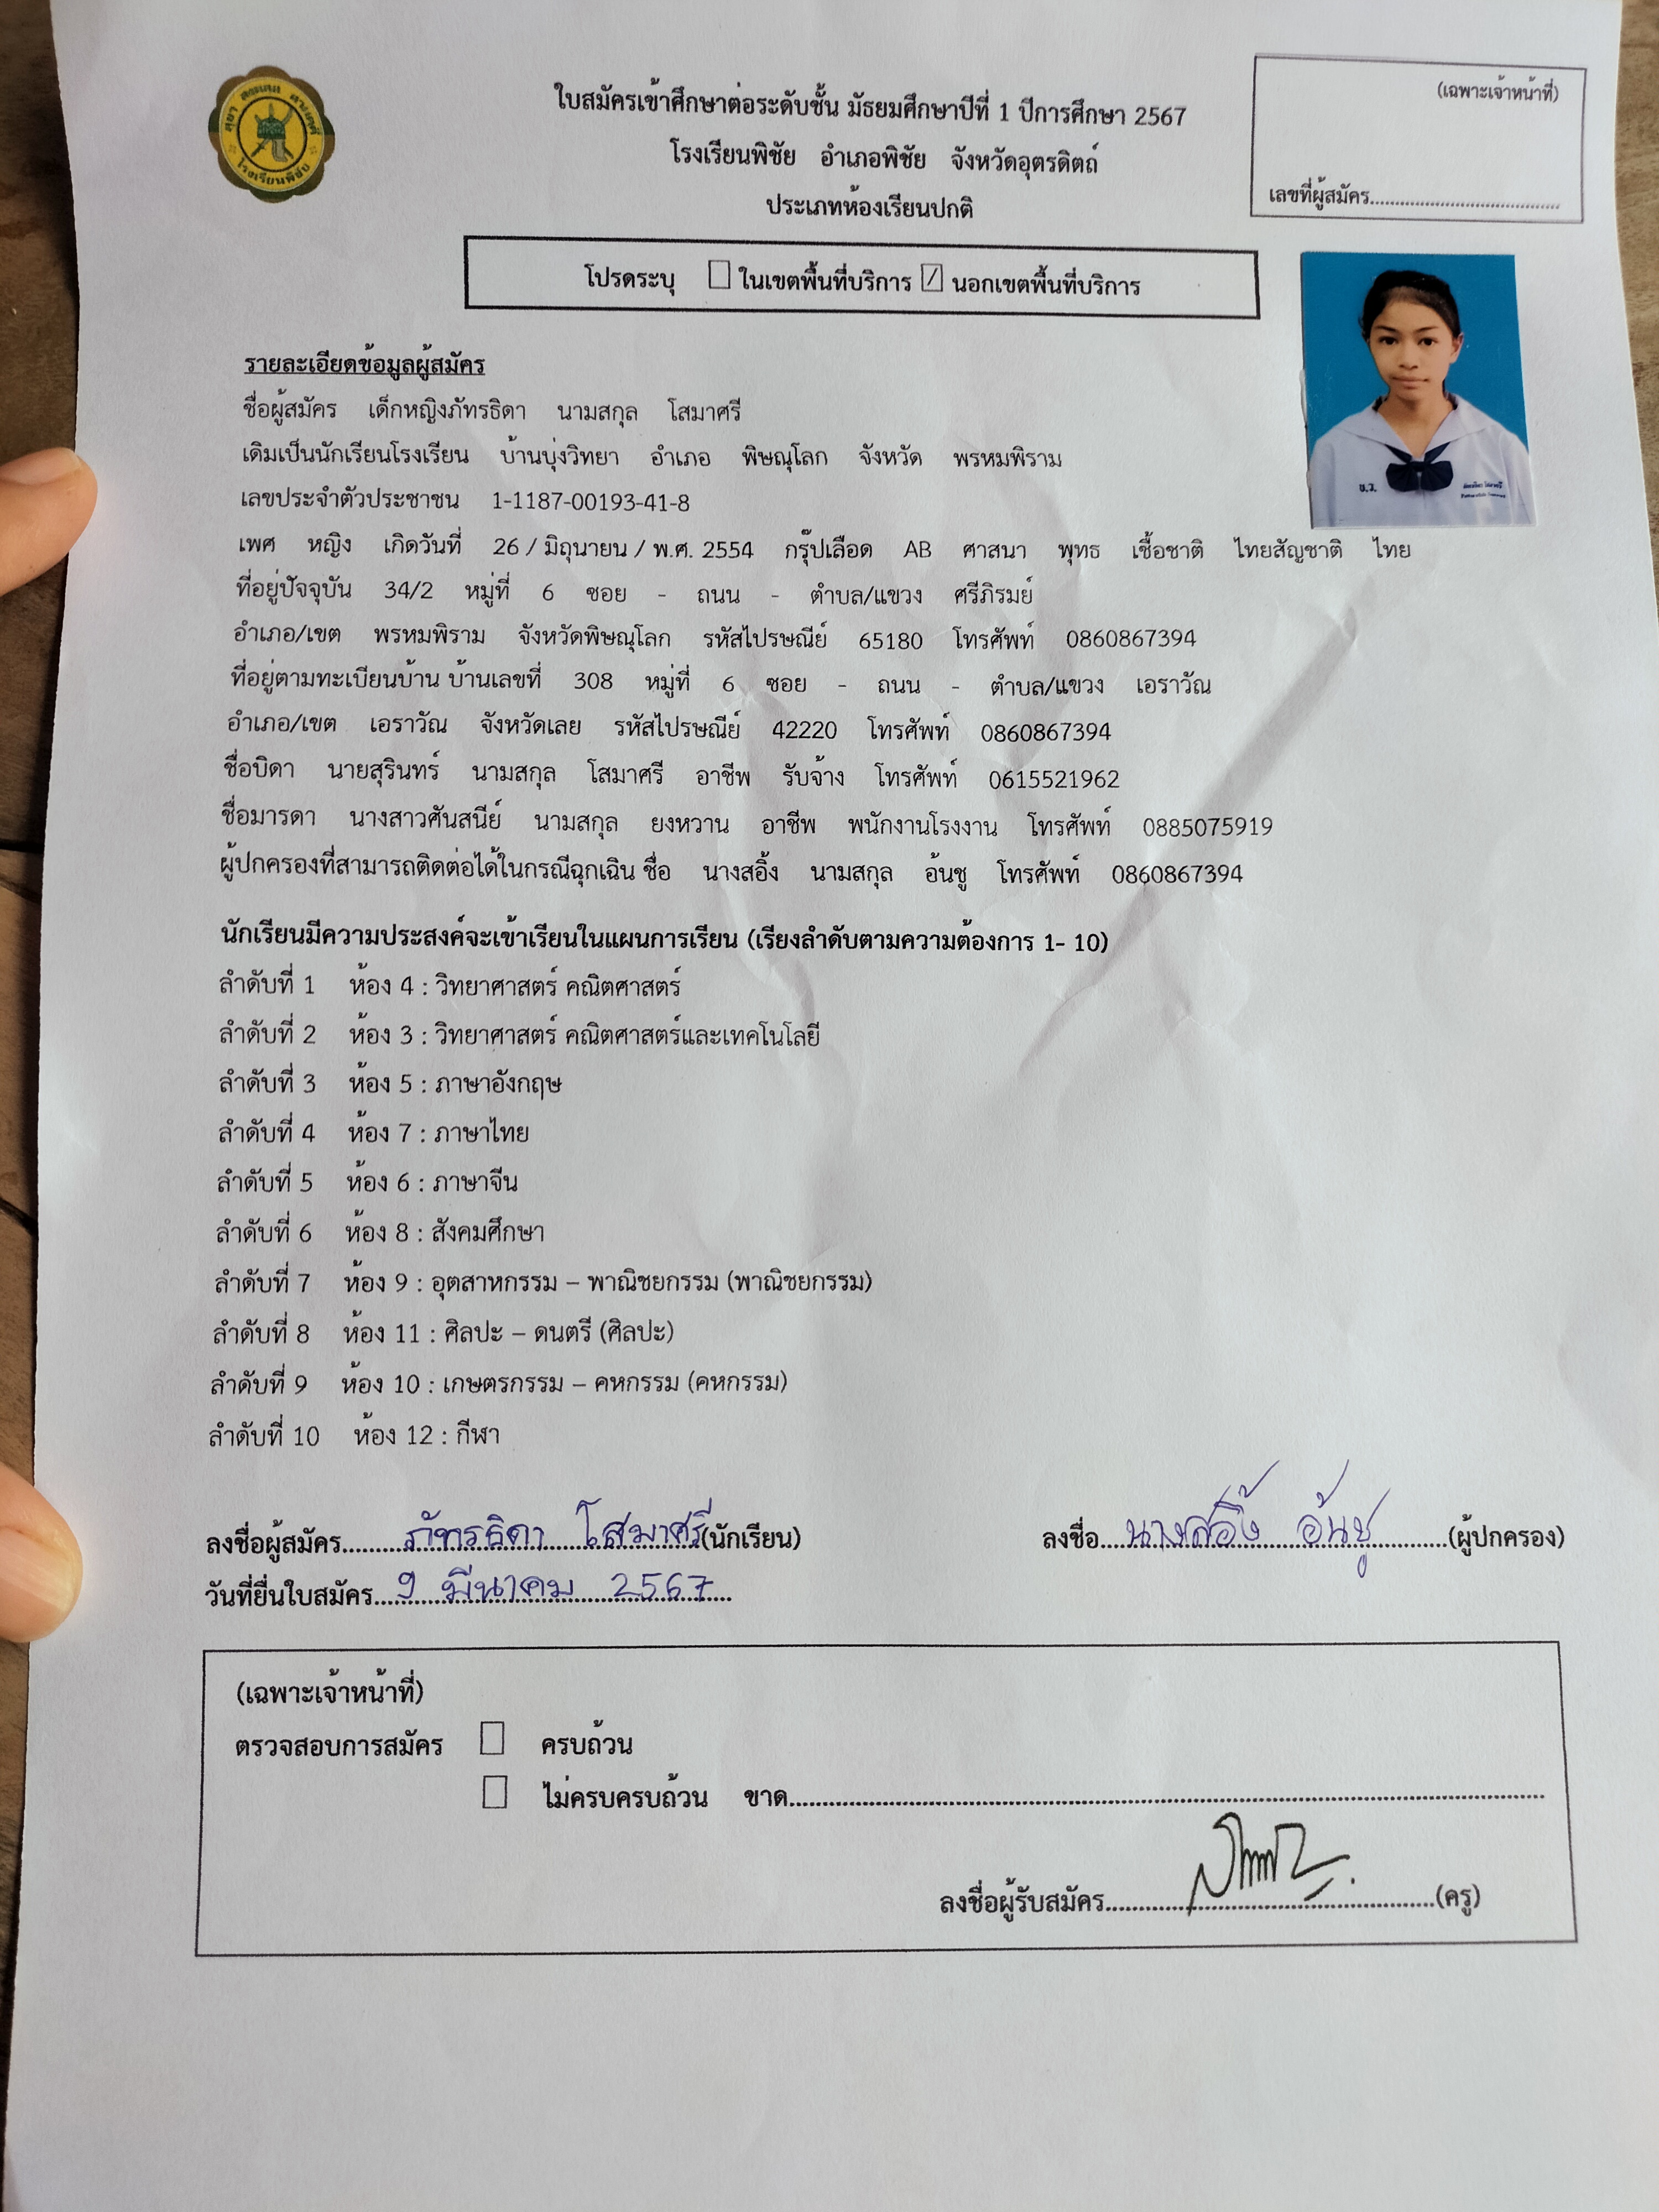 (เฉพาะเจ้าหน้าที่)
เลขที่ผู้สมัคร
โรงเรียนพิชัย
ใบสมัครเข้าศึกษาต่อระดับชั้น มัธยมศึกษาปีที่ 1 ปีการศึกษา 2567
โรงเรียนพิชัย อำเภอพิชัย จังหวัดอุตรดิตถ์
ประเภทห้องเรียนปกติ
โปรดระบุ ☐ ในเขตพื้นที่บริการ ☑ นอกเขตพื้นที่บริการ
ข.ว.
รายละเอียดข้อมูลผู้สมัคร
ชื่อผู้สมัคร เด็กหญิงภัทรธิดา นามสกุล โสมาศรี
เดิมเป็นนักเรียนโรงเรียน บ้านบุ่งวิทยา อำเภอ พิษณุโลก จังหวัด พรหมพิราม
เลขประจำตัวประชาชน 1-1187-00193-41-8
เพศ หญิง เกิดวันที่ 26 / มิถุนายน / พ.ศ. 2554 กรุ๊ปเลือด AB ศาสนา พุทธ เชื้อชาติ ไทยสัญชาติ ไทย
ที่อยู่ปัจจุบัน 34/2 หมู่ที่ 6 ซอย - ถนน - ตำบล/แขวง ศรีภิรมย์
อำเภอ/เขต พรหมพิราม จังหวัดพิษณุโลก รหัสไปรษณีย์ 65180 โทรศัพท์ 0860867394
ที่อยู่ตามทะเบียนบ้าน บ้านเลขที่ 308 หมู่ที่ 6 ซอย - ถนน - ตำบล/แขวง เอราวัณ
อำเภอ/เขต เอราวัณ จังหวัดเลย รหัสไปรษณีย์ 42220 โทรศัพท์ 0860867394
ชื่อบิดา นายสุรินทร์ นามสกุล โสมาศรี อาชีพ รับจ้าง โทรศัพท์ 0615521962
ชื่อมารดา นางสาวศันสนีย์ นามสกุล ยงหวาน อาชีพ พนักงานโรงงาน โทรศัพท์ 0885075919
ผู้ปกครองที่สามารถติดต่อได้ในกรณีฉุกเฉิน ชื่อ นางสอิ้ง นามสกุล อ้นชู โทรศัพท์ 0860867394
นักเรียนมีความประสงค์จะเข้าเรียนในแผนการเรียน (เรียงลำดับตามความต้องการ 1- 10)
ลำดับที่ 1 ห้อง 4 : วิทยาศาสตร์ คณิตศาสตร์
ลำดับที่ 2 ห้อง 3 : วิทยาศาสตร์ คณิตศาสตร์และเทคโนโลยี
ลำดับที่ 3 ห้อง 5 : ภาษาอังกฤษ
ลำดับที่ 4 ห้อง 7 : ภาษาไทย
ลำดับที่ 5 ห้อง 6 : ภาษาจีน
ลำดับที่ 6 ห้อง 8 : สังคมศึกษา
ลำดับที่ 7 ห้อง 9 : อุตสาหกรรม – พาณิชยกรรม (พาณิชยกรรม)
ลำดับที่ 8 ห้อง 11 : ศิลปะ – ดนตรี (ศิลปะ)
ลำดับที่ 9 ห้อง 10 : เกษตรกรรม – คหกรรม (คหกรรม)
ลำดับที่ 10 ห้อง 12 : กีฬา
ลงชื่อผู้สมัคร ภัทรธิดา โสมาศรี (นักเรียน) ลงชื่อ นางสอิ้ง อ้นชู (ผู้ปกครอง)
วันที่ยื่นใบสมัคร 9 มีนาคม 2567
(เฉพาะเจ้าหน้าที่)
ตรวจสอบการสมัคร ☐ ครบถ้วน
☐ ไม่ครบครบถ้วน ขาด
ลงชื่อผู้รับสมัคร (ครู)